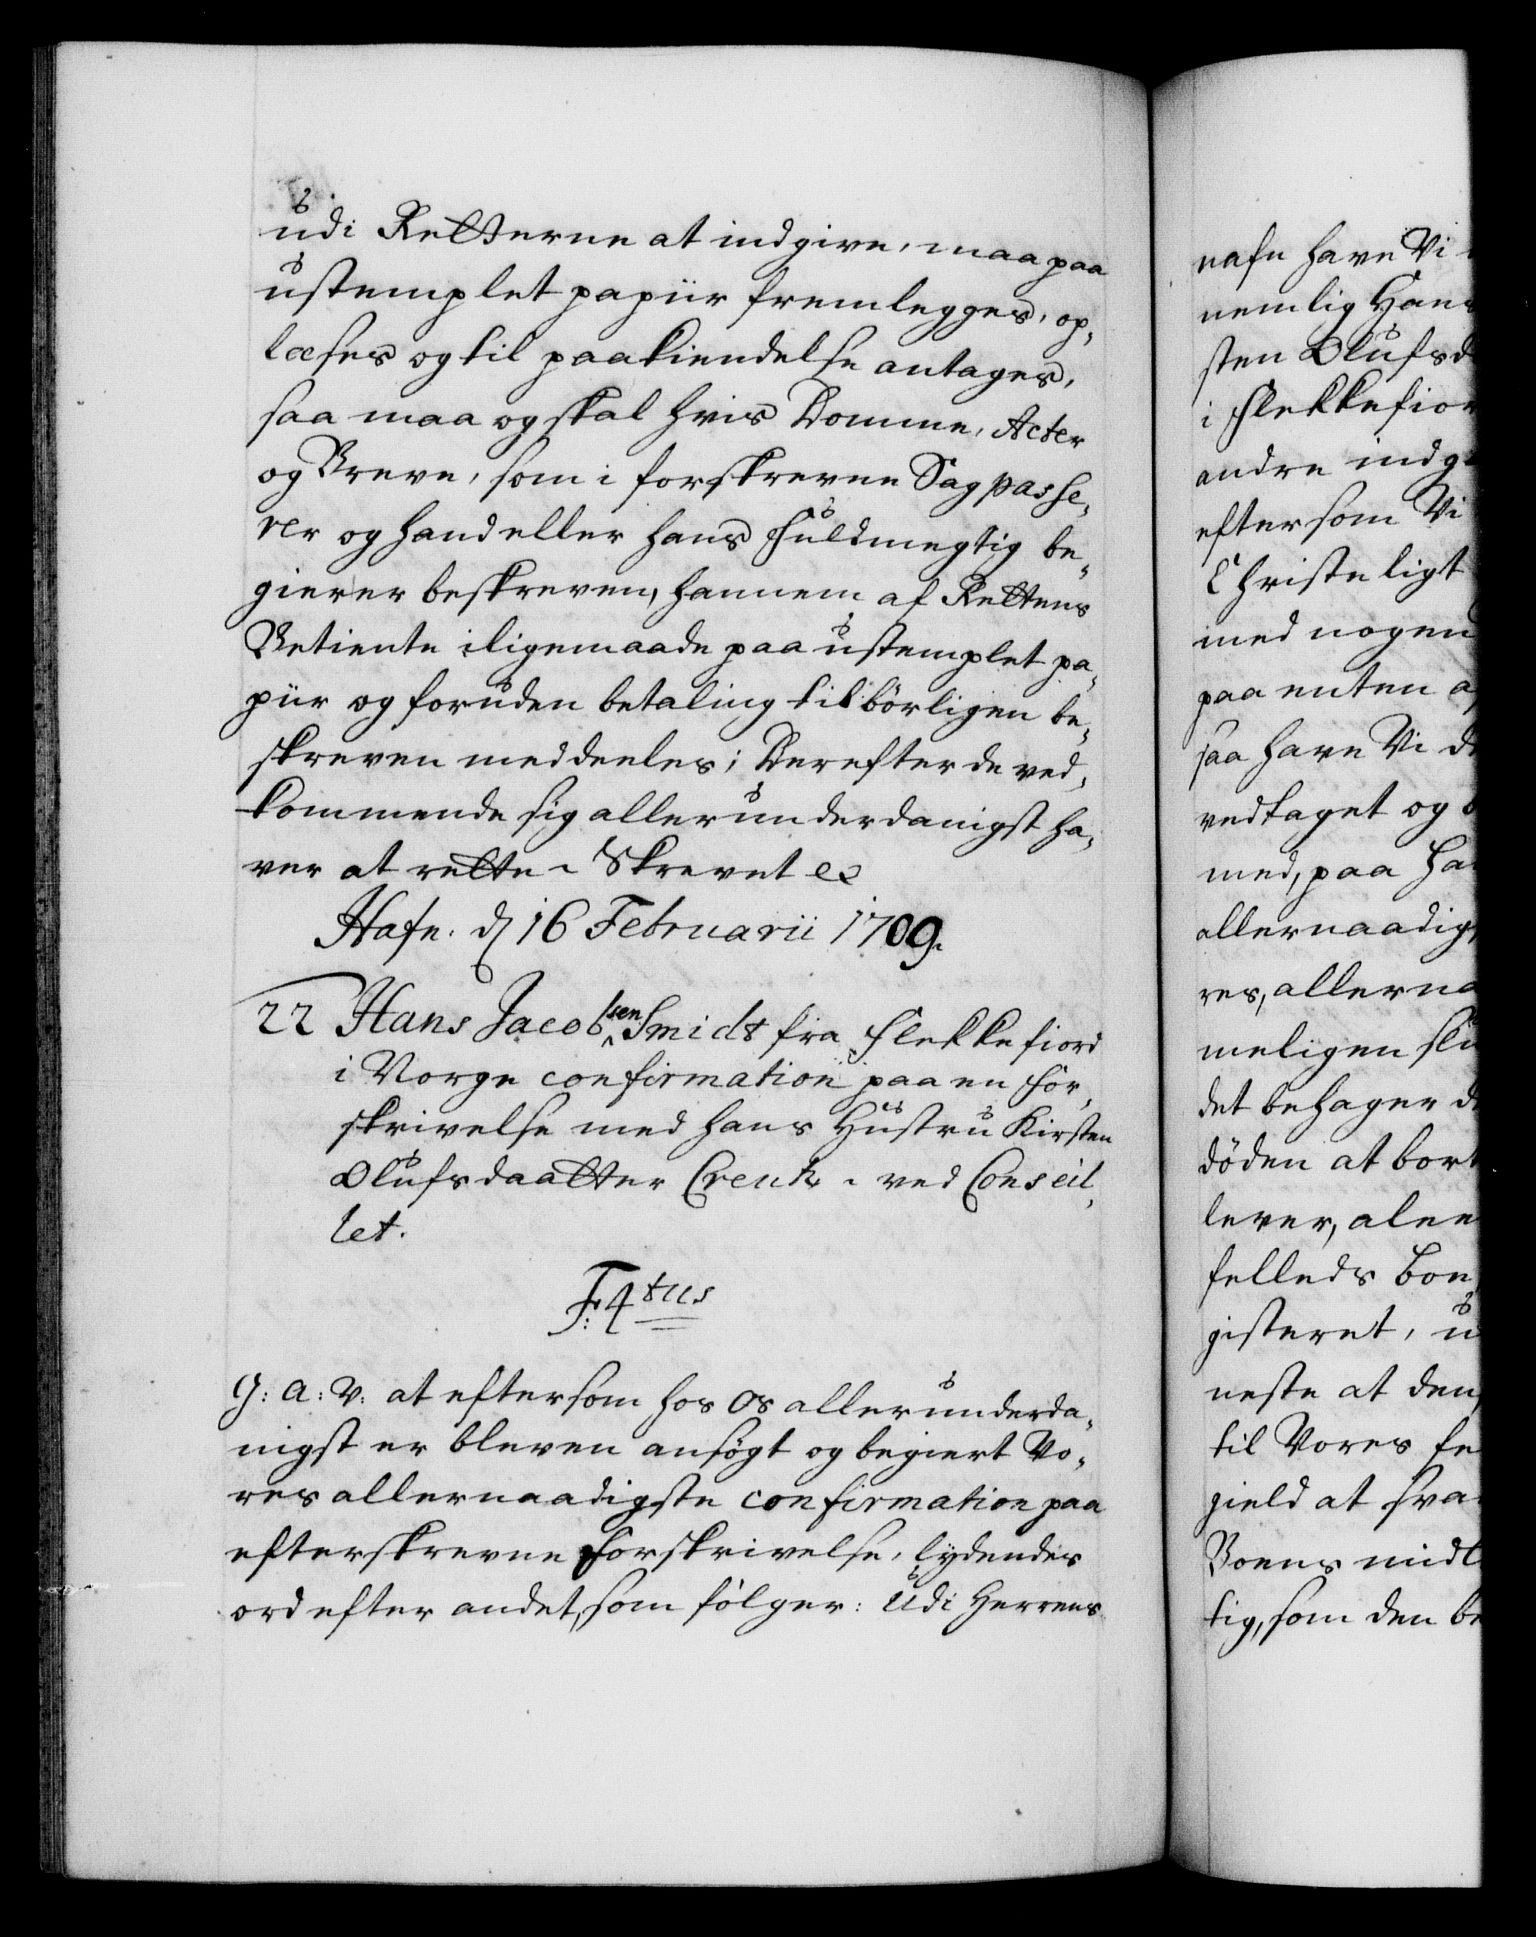 udi Retterne at indgive, maa paa
ustemplet papiir fremlegges, op-
læses og til paakiendelse antages,
saa maa og skal hvis Domme, Acter
og Breve, som i forskrevne Sag passe-
rer og hand eller hans fuldmegtig be-
gierer beskreven, hannem af Rettens
Betiente iligemaade paa ustemplet pa-
piir og foruden betaling tilbörligen be-
skreven meddeeles; Derefter de ved-
kommende sig allerunderdanigst ha-
ver at rette. Skrevet &c
Hafn. d 16 Februarii 1709.
22 Hans Jacobsen Smidt fra Flekkefiord
i Norge confirmation paa en for-
skrivelse med hans Hustru Kirsten
Olufsdaatter Creutz. ved Conseil-
let.
F: 4tus
G: A: V: at eftersom hos Os allerunderda-
nigst er bleven ansøgt og begiert Vo-
res allernaadigste confirmation paa
efterskrevne Forskrivelse, lydendes
ord efter andet, som fölger: Udi Herrens
nafn have Vi
nemlig Hans
sten Olufsd
i Flekkefior
andre indg
eftersom Vi
Christeligt
med nogen
paa enten a
saa have Vi d
vedtaget og b
med, paa ha
allernaadigs
res, allerna
meligen slu
det behager d
döden at bort
lever, alene
felleds boe
gisteret, u
neste at den
til Vores fe
gield at sva
Boens midl
tig, som den be